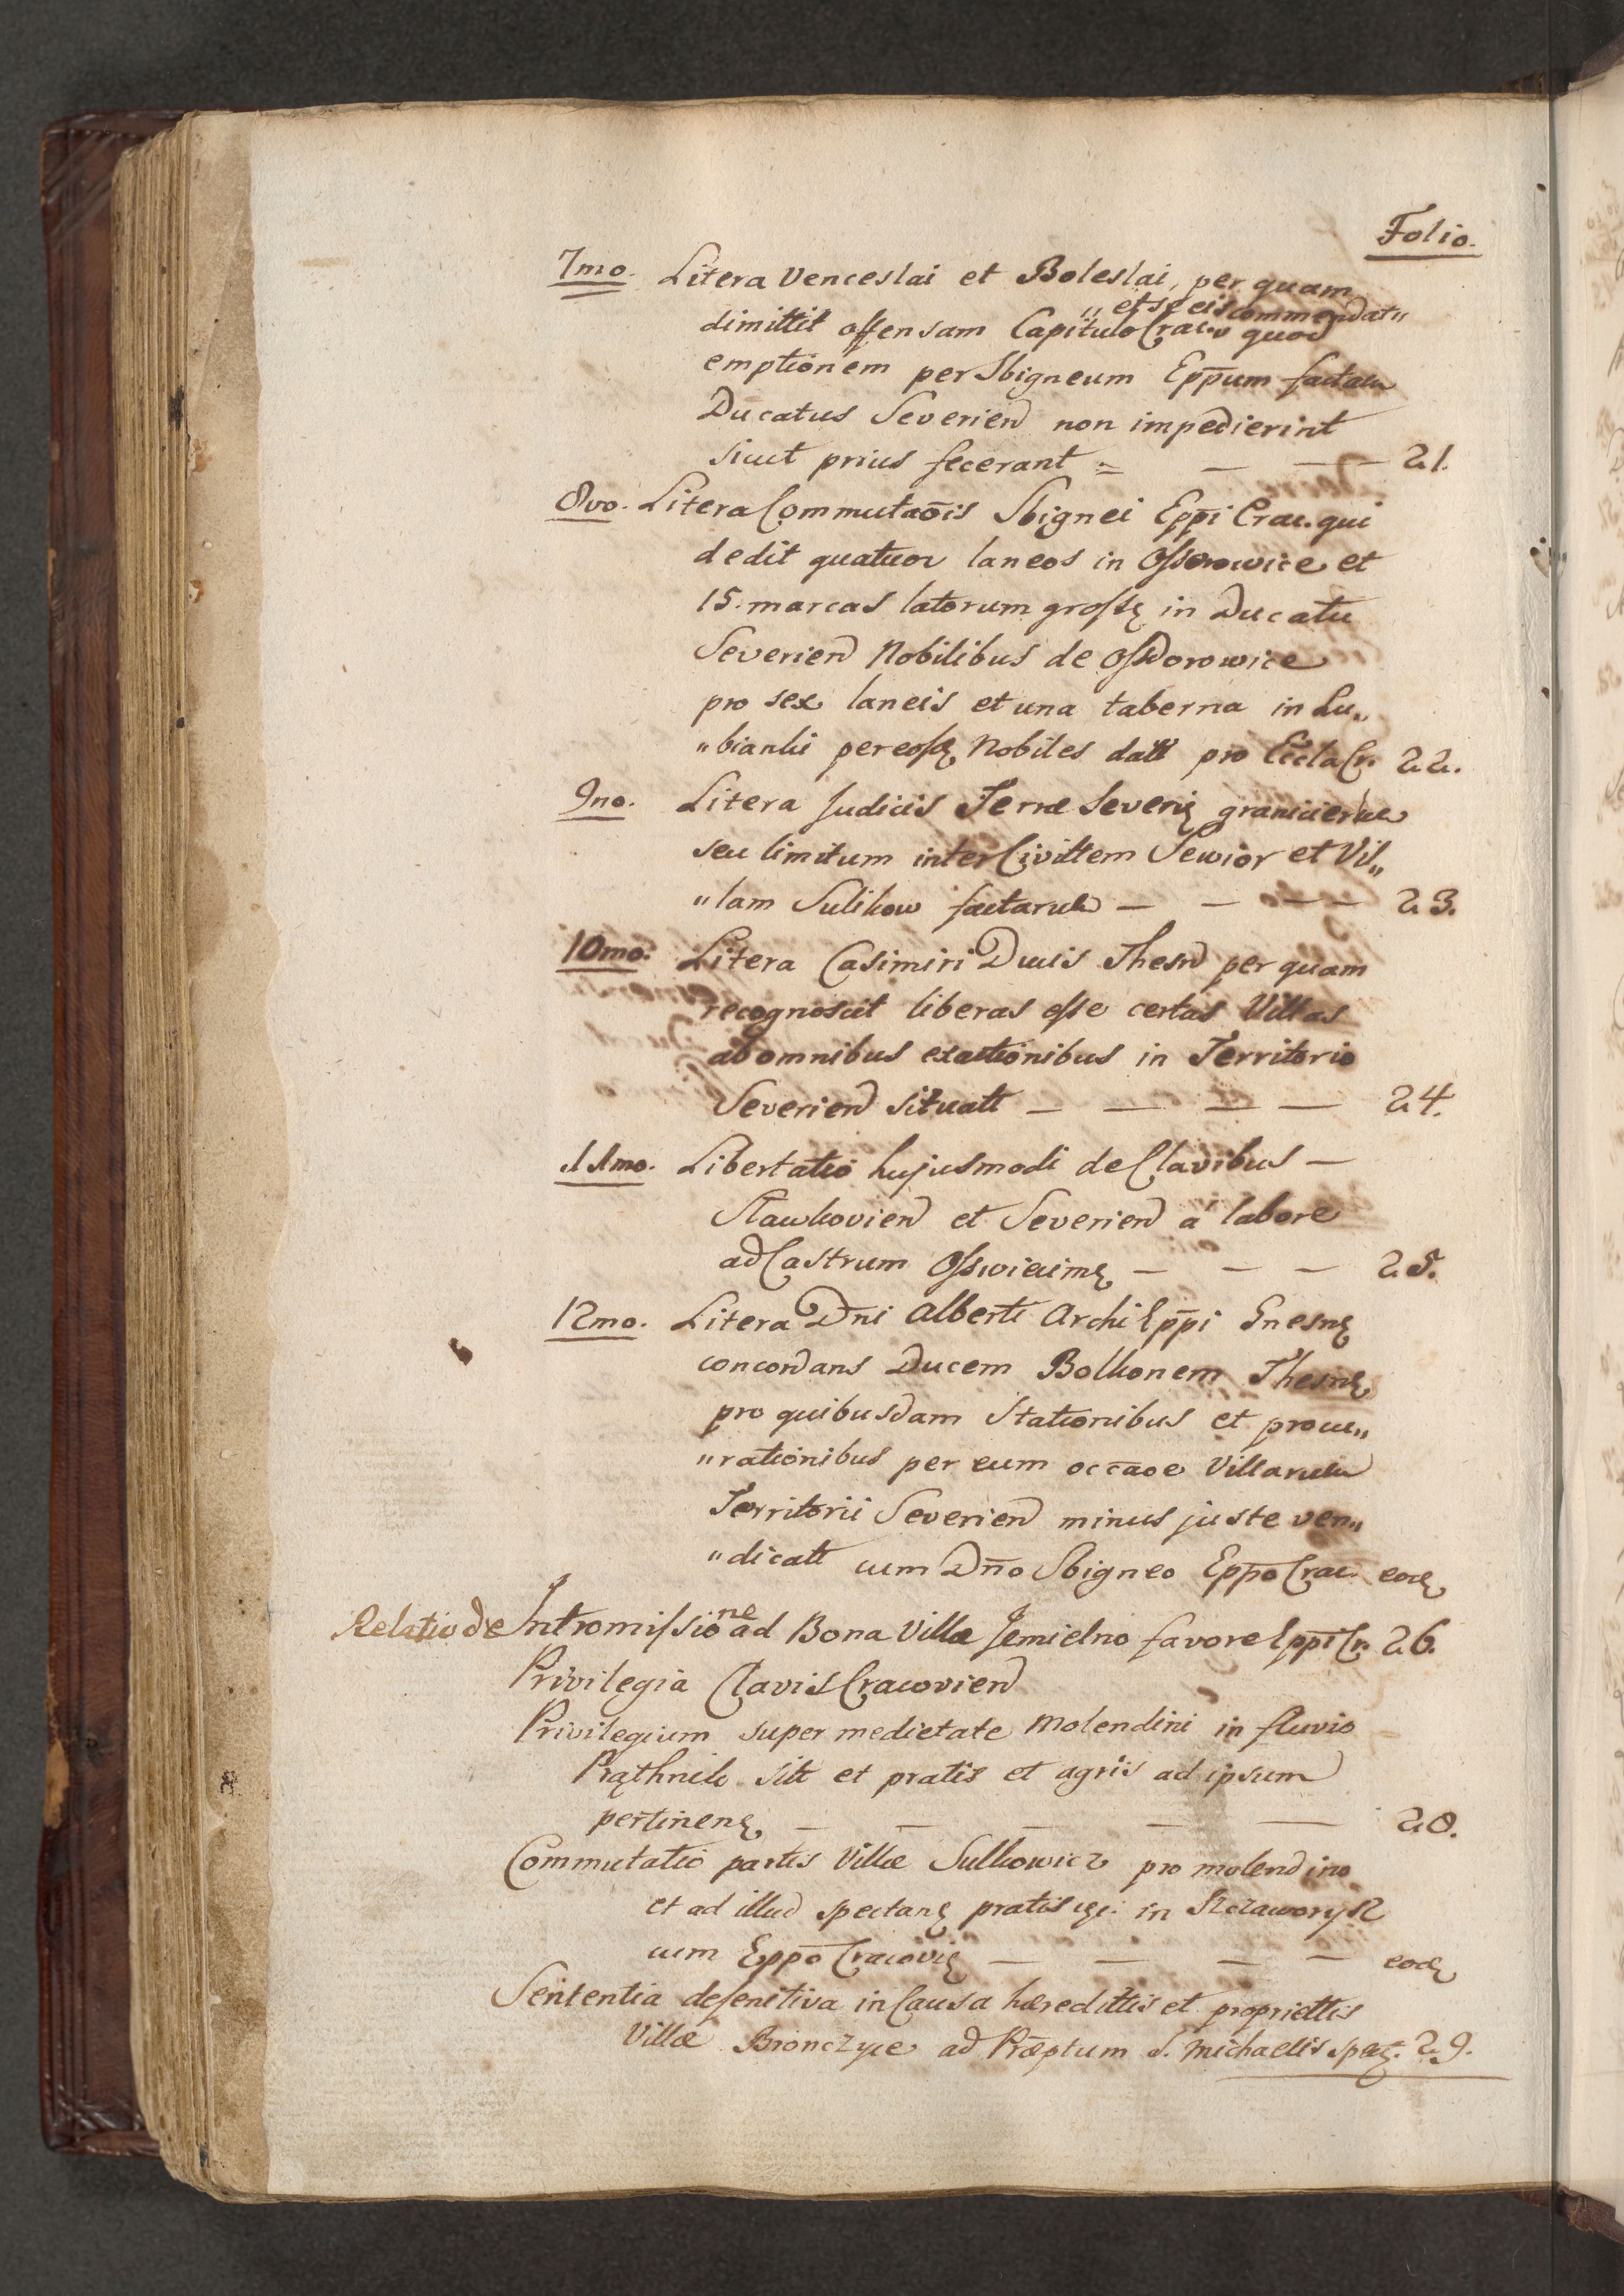 Folio.
7mo. Litera Venceslai et Boleslai, per quam
„et se eis commendat„
dimittit offensam Capitulo Crac. quod
emptionem per Sbigneum Epp̄um factam
Ducatus Severien non impedierint
sicut prius fecerant = — — 21.
8vo. Litera Commutaōis Sbignei Epp̄i Crac. qui
dedit quatuor laneos in Ossorowice et
15. marcas latorum gross in Ducatu
Severien Nobilibus de Ossdorowice
pro sex laneis et una taberna in Lu„
„bianki per eosd Nobiles datt pro Eccla Cr. 22.
9no. Litera Judicis Terræ Severi granicierum
seu limitum inter Civittem Sewior et Vil„
„lam Sulikow factarum — — — — 23.
10mo. Litera Casimiri Ducis Thesn per quam
recognoscit liberas esse certas Villas
ab omnibus exactionibus in Territorio
Severien situatt — — — — 24.
11mo. Libertatio hujusmodi de Clavibus —
Slawkovien et Severien a labore
ad Castrum Osswiecim — — — 25.
12mo. Litera Dn̄i Alberti Archi Epp̄i Gnesn
concordans Ducem Bolkonem Thesn
pro quibusdam Stationibus et procu„
„rationibus per eum occāoe Villarum
Territorii Severien minus juste ven„
„dicatt cum Dn̄o Sbigneo Epp̄o Crac. eod
Relatio de Intromissione ad Bona Villæ Jemielno favore Epp̄i Cr. 26.
Privilegia Clavis Cracovien
Privilegium super medietate Molendini in fluvio
Prąthnik sitt et pratis et agris ad ipsum
pertinen — — — — — 28.
Commutatio partis Villæ Sulkowicz pro molendino
et ad illud spectan pratis in Szczaworysz
cum Epp̄o Cracovi — — — — eod
Sententia defenitiva in Causa hæredittis et propriettis
Villæ Bronczyce ad Præptum S. Michaelis spect. 29.